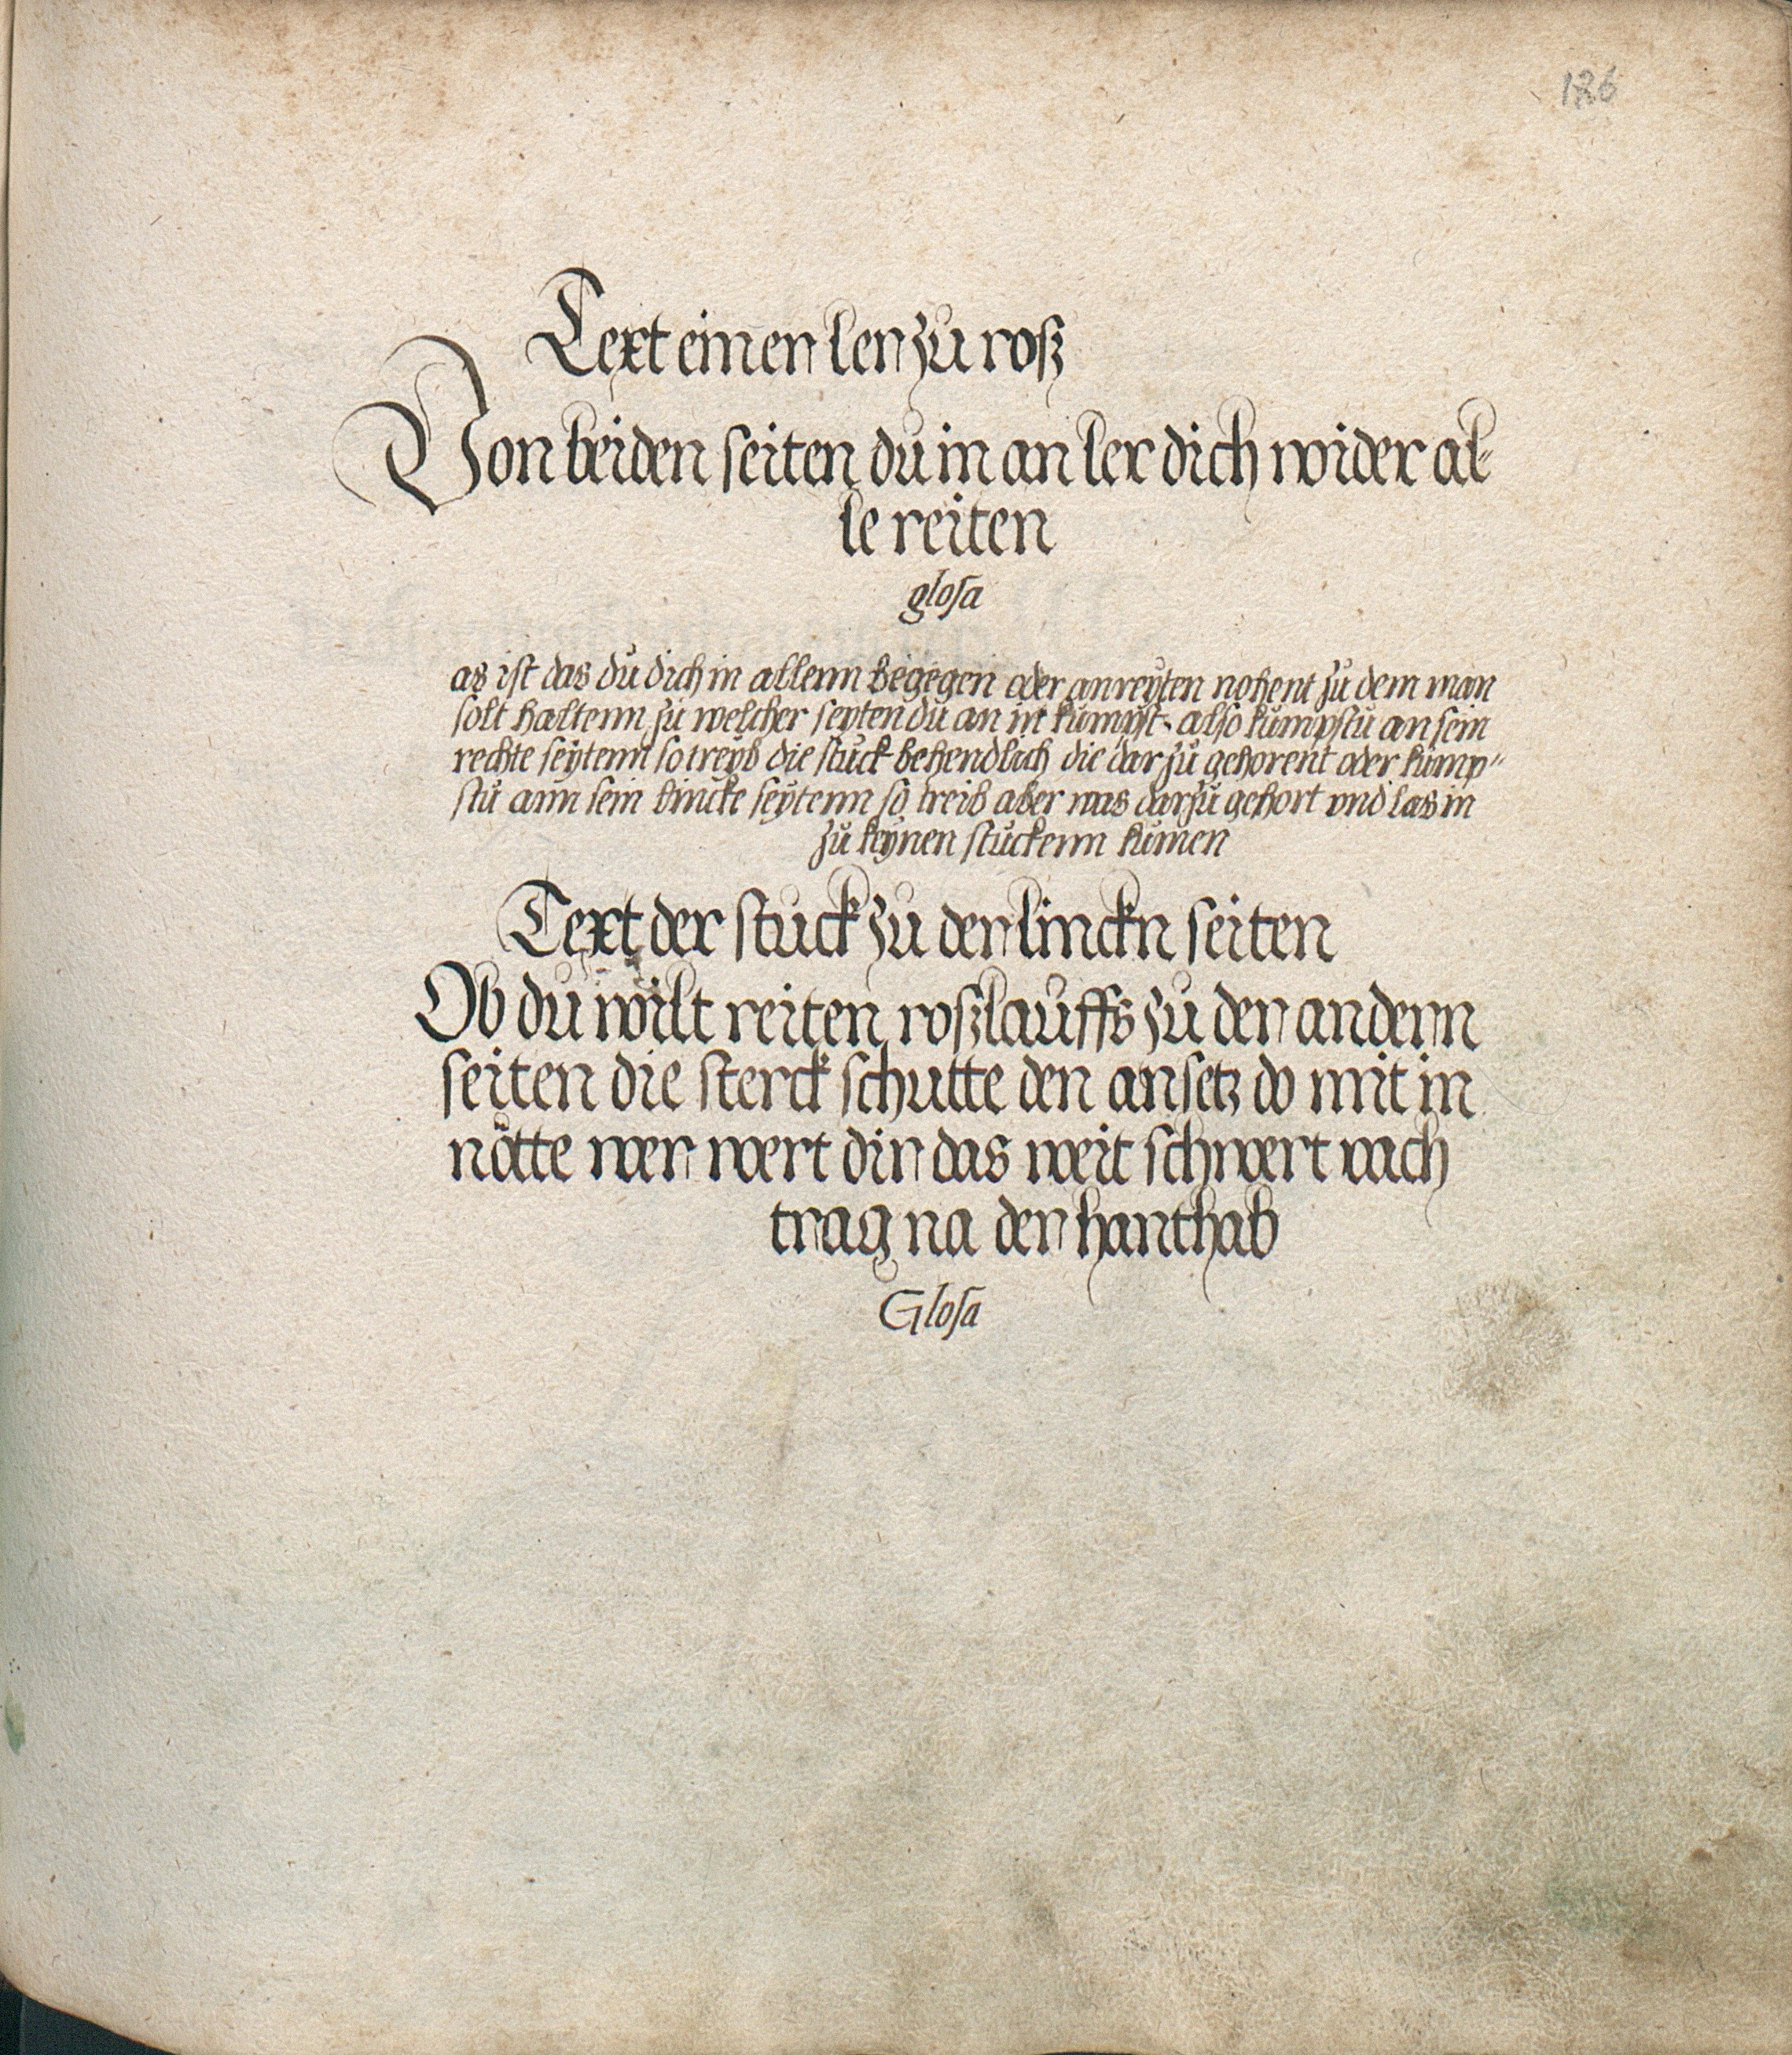 126
Text einen ler zu roß
Von beiden seiten du in an ler dich wider al-
le reiten
glosa
as ist das du dich in allenn begegen oder anreyten nohent zu dem man
solt haltenn zu welcher seyten du an in kumpst also kumpstu an sein
rechte seytenn so treyb die stuck behendlich die dar zu gehorent oder kump"
stu ann sein lincke seytenn so treib aber was darzu gehort vnd las in
zu keynen stuckenn kumen
Text der stuck zu der linckn seiten
Ob du wilt reiten roßlauffs zu der andern
seiten die sterck schutte den ansetz do mit in
nötte wer wert dir das weit schwert nach
trag na der hanthab
Glosa